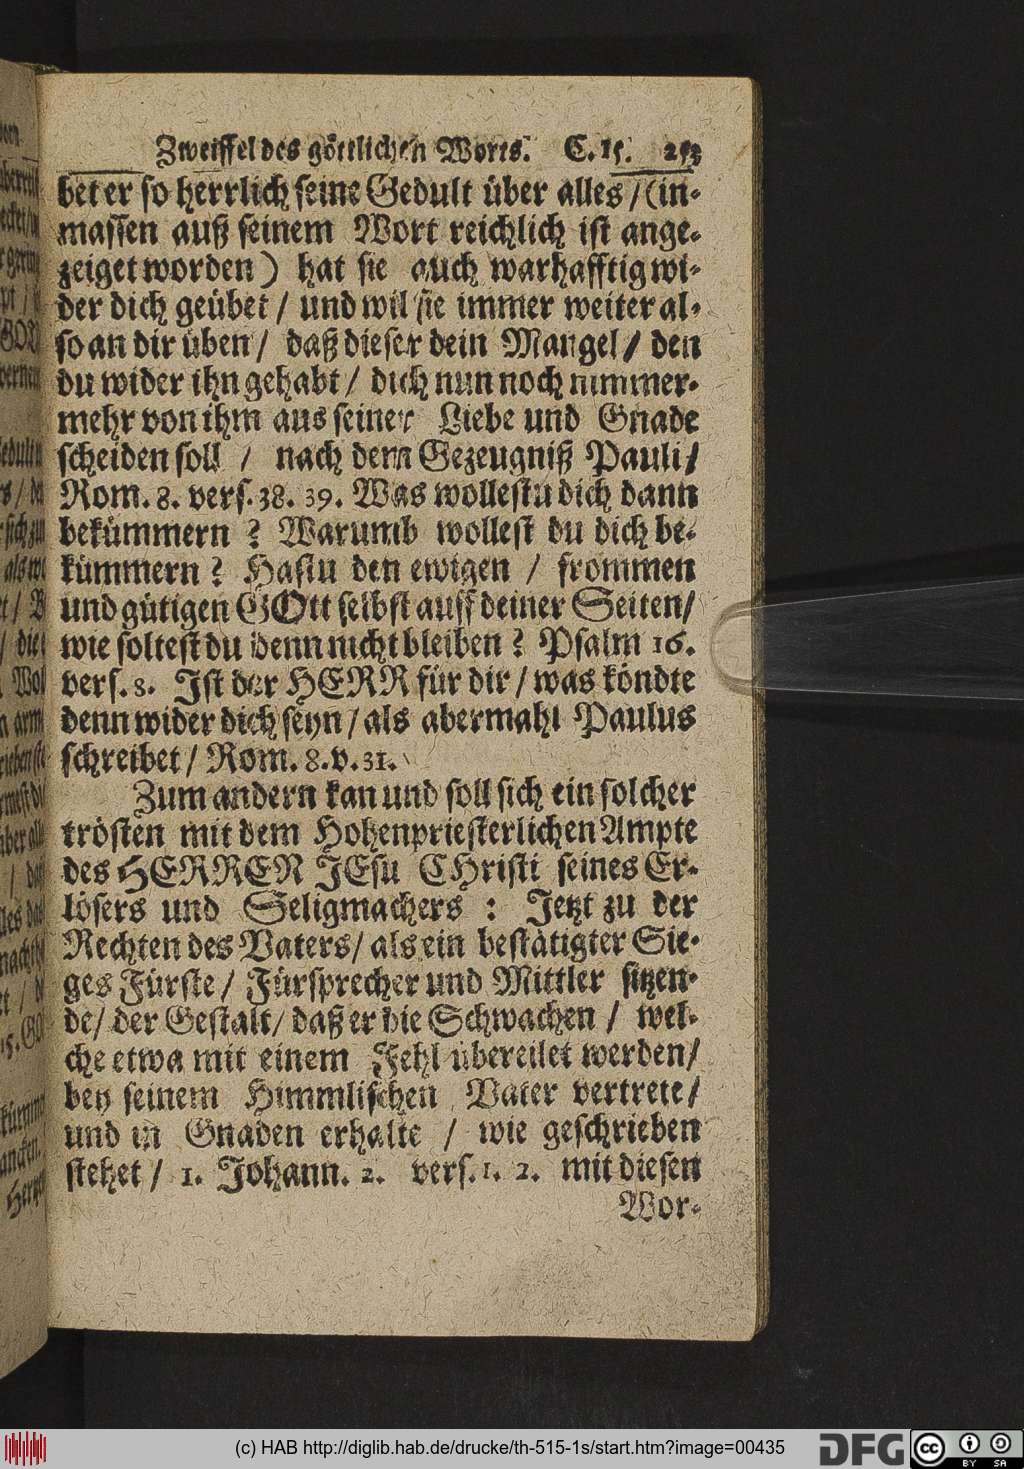 Zweiffel des göttlichen Worts. C. 15. 253
bet er so herrlich seine Gedult über alles / (in-
massen auß seinem Wort reichlich ist ange-
zeiget worden) hat sie auch warhafftig wi-
der dich geübet / und wil sie immer weiter al-
so an dir üben / daß dieser dein Mangel / den
du wider ihn gehabt / dich nun noch nimmer-
mehr von ihm aus seiner Liebe und Gnade
scheiden soll / nach dem Gezeugniß Pauli /
Rom. 8. vers. 38. 39. Was wollestu dich dann
bekümmern ? Warumb wollest du dich be-
kümmern ? Hastu den ewigen / frommen
und gütigen GOtt selbst auff deiner Seiten /
wie soltest du denn nicht bleiben ? Psalm 16.
vers. 8. Ist der HERR für dir / was köndte
denn wider dich seyn / als abermahl Paulus
schreibet / Rom. 8. v. 31.
Zum andern kan und soll sich ein solcher
trösten mit dem Hohenpriesterlichen Ampte
des HERREN JEsu CHristi seines Er-
lösers und Seligmachers : Jetzt zu der
Rechten des Vaters / als ein bestätigter Sie-
ges Fürste / Fürsprecher und Mittler sitzen-
de / der Gestalt / daß er die Schwachen / wel-
che etwa mit einem Fehl übereilet werden /
bey seinem Himmlischen Vater vertrete /
und in Gnaden erhalte / wie geschrieben
stehet / 1. Johann. 2. vers. 1. 2. mit diesen
Wor-
(c) HAB http://diglib.hab.de/drucke/th-515-1s/start.htm?image=00435
DFG
cc BY SA